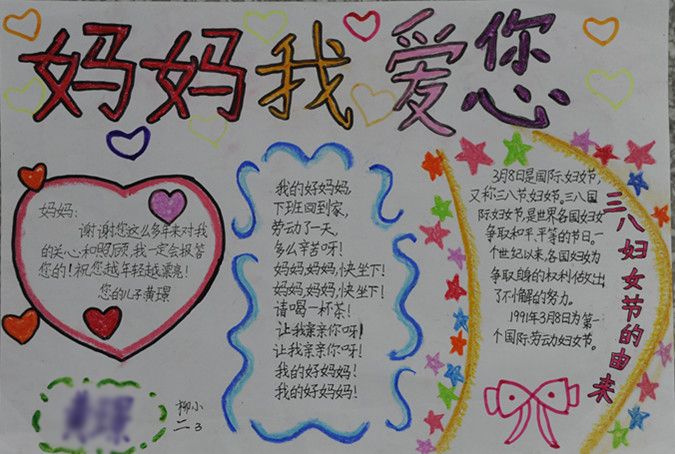 妈妈我爱您
妈妈:
谢谢您这么多年来对我
的关心和照顾,我一定会报答
您的!祝您越年轻越漂亮!
您的儿子黄璟
我的好妈妈,
下班回到家,
劳动了一天,
多么辛苦呀!
妈妈,妈妈,快坐下!
妈妈,妈妈,快坐下!
请喝一杯茶!
让我亲亲你呀!
让我亲亲你呀!
我的好妈妈!
我的好妈妈!
3月8日是国际妇女节,
又称三八节,妇女节。三八国
际妇女节,是世界各国妇女
争取和平、平等的节日。一
个世纪以来,各国妇女为
争取自身的权利做出
了不懈的努力。
1991年3月8日为第一
个国际劳动妇女节。
三八妇女节的由来
柳小
二3